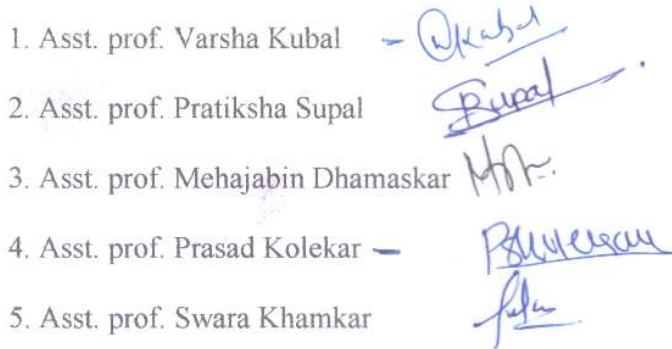 1. Asst. prof. Varsha Kubal -
2. Asst. prof. Pratiksha Supal
3. Asst. prof. Mehajabin Dhamaskar
4. Asst. prof. Prasad Kolekar -
5. Asst. prof. Swara Khamkar